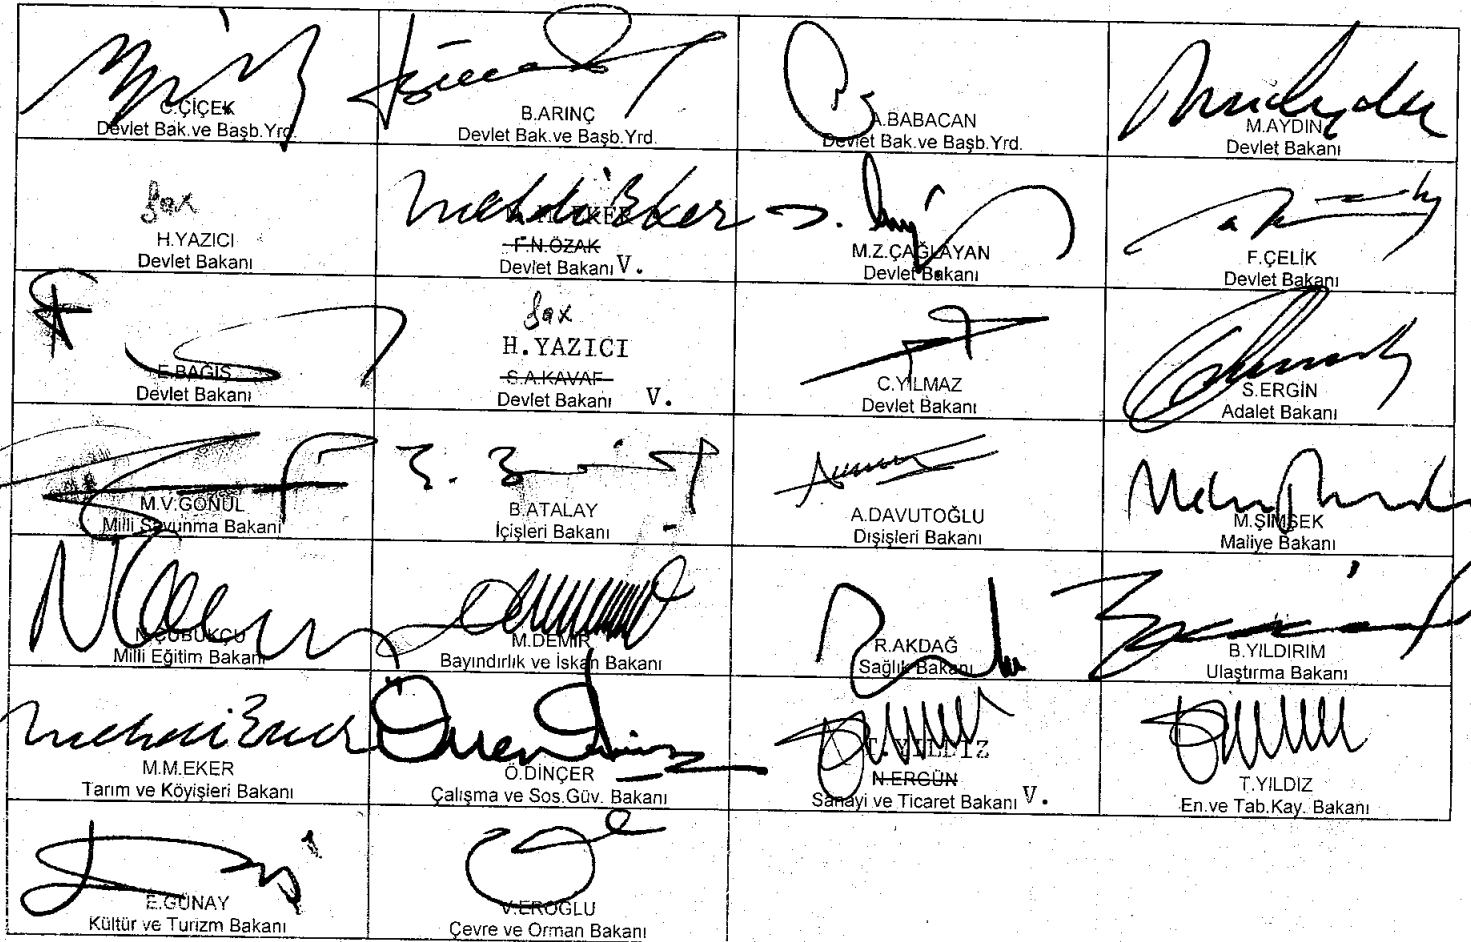 C.ÇİÇEK
Devlet Bak.ve Başb.Yrd.
B.ARINÇ
Devlet Bak.ve Başb.Yrd.
A.BABACAN
Devlet Bak.ve Başb.Yrd.
M.AYDIN
Devlet Bakanı
fax
H.YAZICI
Devlet Bakanı
Mehdi Eker
EKER
F.N.ÖZAK
Devlet Bakanı V.
M.Z.ÇAĞLAYAN
Devlet Bakanı
F.ÇELİK
Devlet Bakanı
E.BAĞIŞ
Devlet Bakanı
fax
H.YAZICI
S.A.KAVAF
Devlet Bakanı V.
C.YILMAZ
Devlet Bakanı
S.ERGİN
Adalet Bakanı
M.V.GÖNÜL
Milli Savunma Bakanı
B.ATALAY
İçişleri Bakanı
A.DAVUTOĞLU
Dışişleri Bakanı
M.ŞİMŞEK
Maliye Bakanı
N.ÇUBUKÇU
Milli Eğitim Bakanı
M.DEMİR
Bayındırlık ve İskan Bakanı
R.AKDAĞ
Sağlık Bakanı
B.YILDIRIM
Ulaştırma Bakanı
M.M.EKER
Tarım ve Köyişleri Bakanı
Ö.DİNÇER
Çalışma ve Sos.Güv. Bakanı
T.YILDIZ
N.ERGÜN
Sanayi ve Ticaret Bakanı V.
T.YILDIZ
En.ve Tab.Kay. Bakanı
E.GÜNAY
Kültür ve Turizm Bakanı
V.EROĞLU
Çevre ve Orman Bakanı